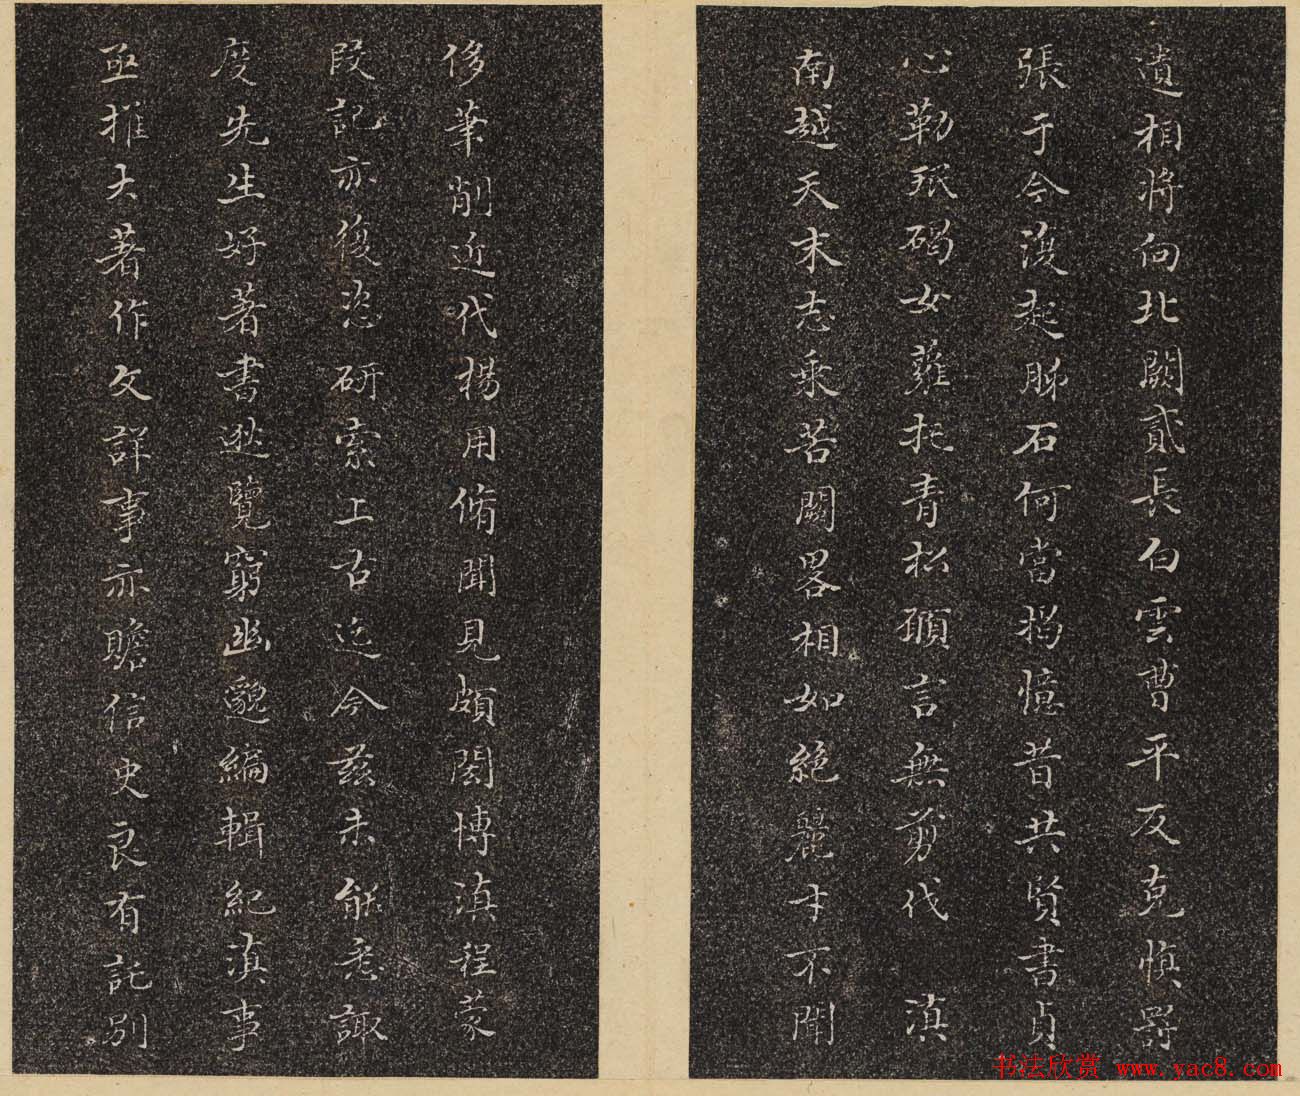 遺相將向北闕貳長白雲曹平反克慎罰
張于今復起肺石何當揭憶昔共賢書貞
心勒珉碣女蘿托青松願言無剪伐　滇
南越天末志乘苦闕畧相如絕麗才不聞
侈筆削近代楊用脩聞見頗閎博滇程蒙
段記亦復恣研索上古迄今茲未能悉諏
度先生好著書逖覽窮幽邈編輯紀滇事
亟推大著作文詳事亦贍信史良有託別
书法欣赏 www.yac8.com